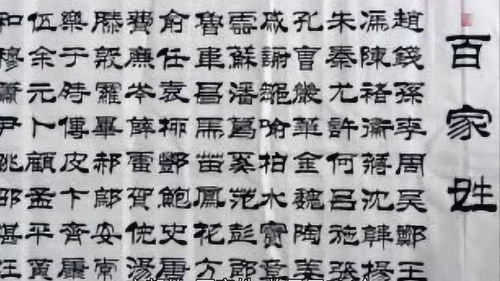 百家姓
趙錢孫李周吳鄭王
馮陳褚衛蔣沈韓楊
朱秦尤許何呂施張
孔曹嚴華金魏陶姜
戚謝鄒喻柏水竇章
雲蘇潘葛奚范彭郎
魯韋昌馬苗鳳花方
俞任袁柳酆鮑史唐
費廉岑薛雷賀倪湯
滕殷羅畢郝鄔安常
樂于時傅皮卞齊康
伍余元卜顧孟平黃
和穆蕭尹姚邵湛汪